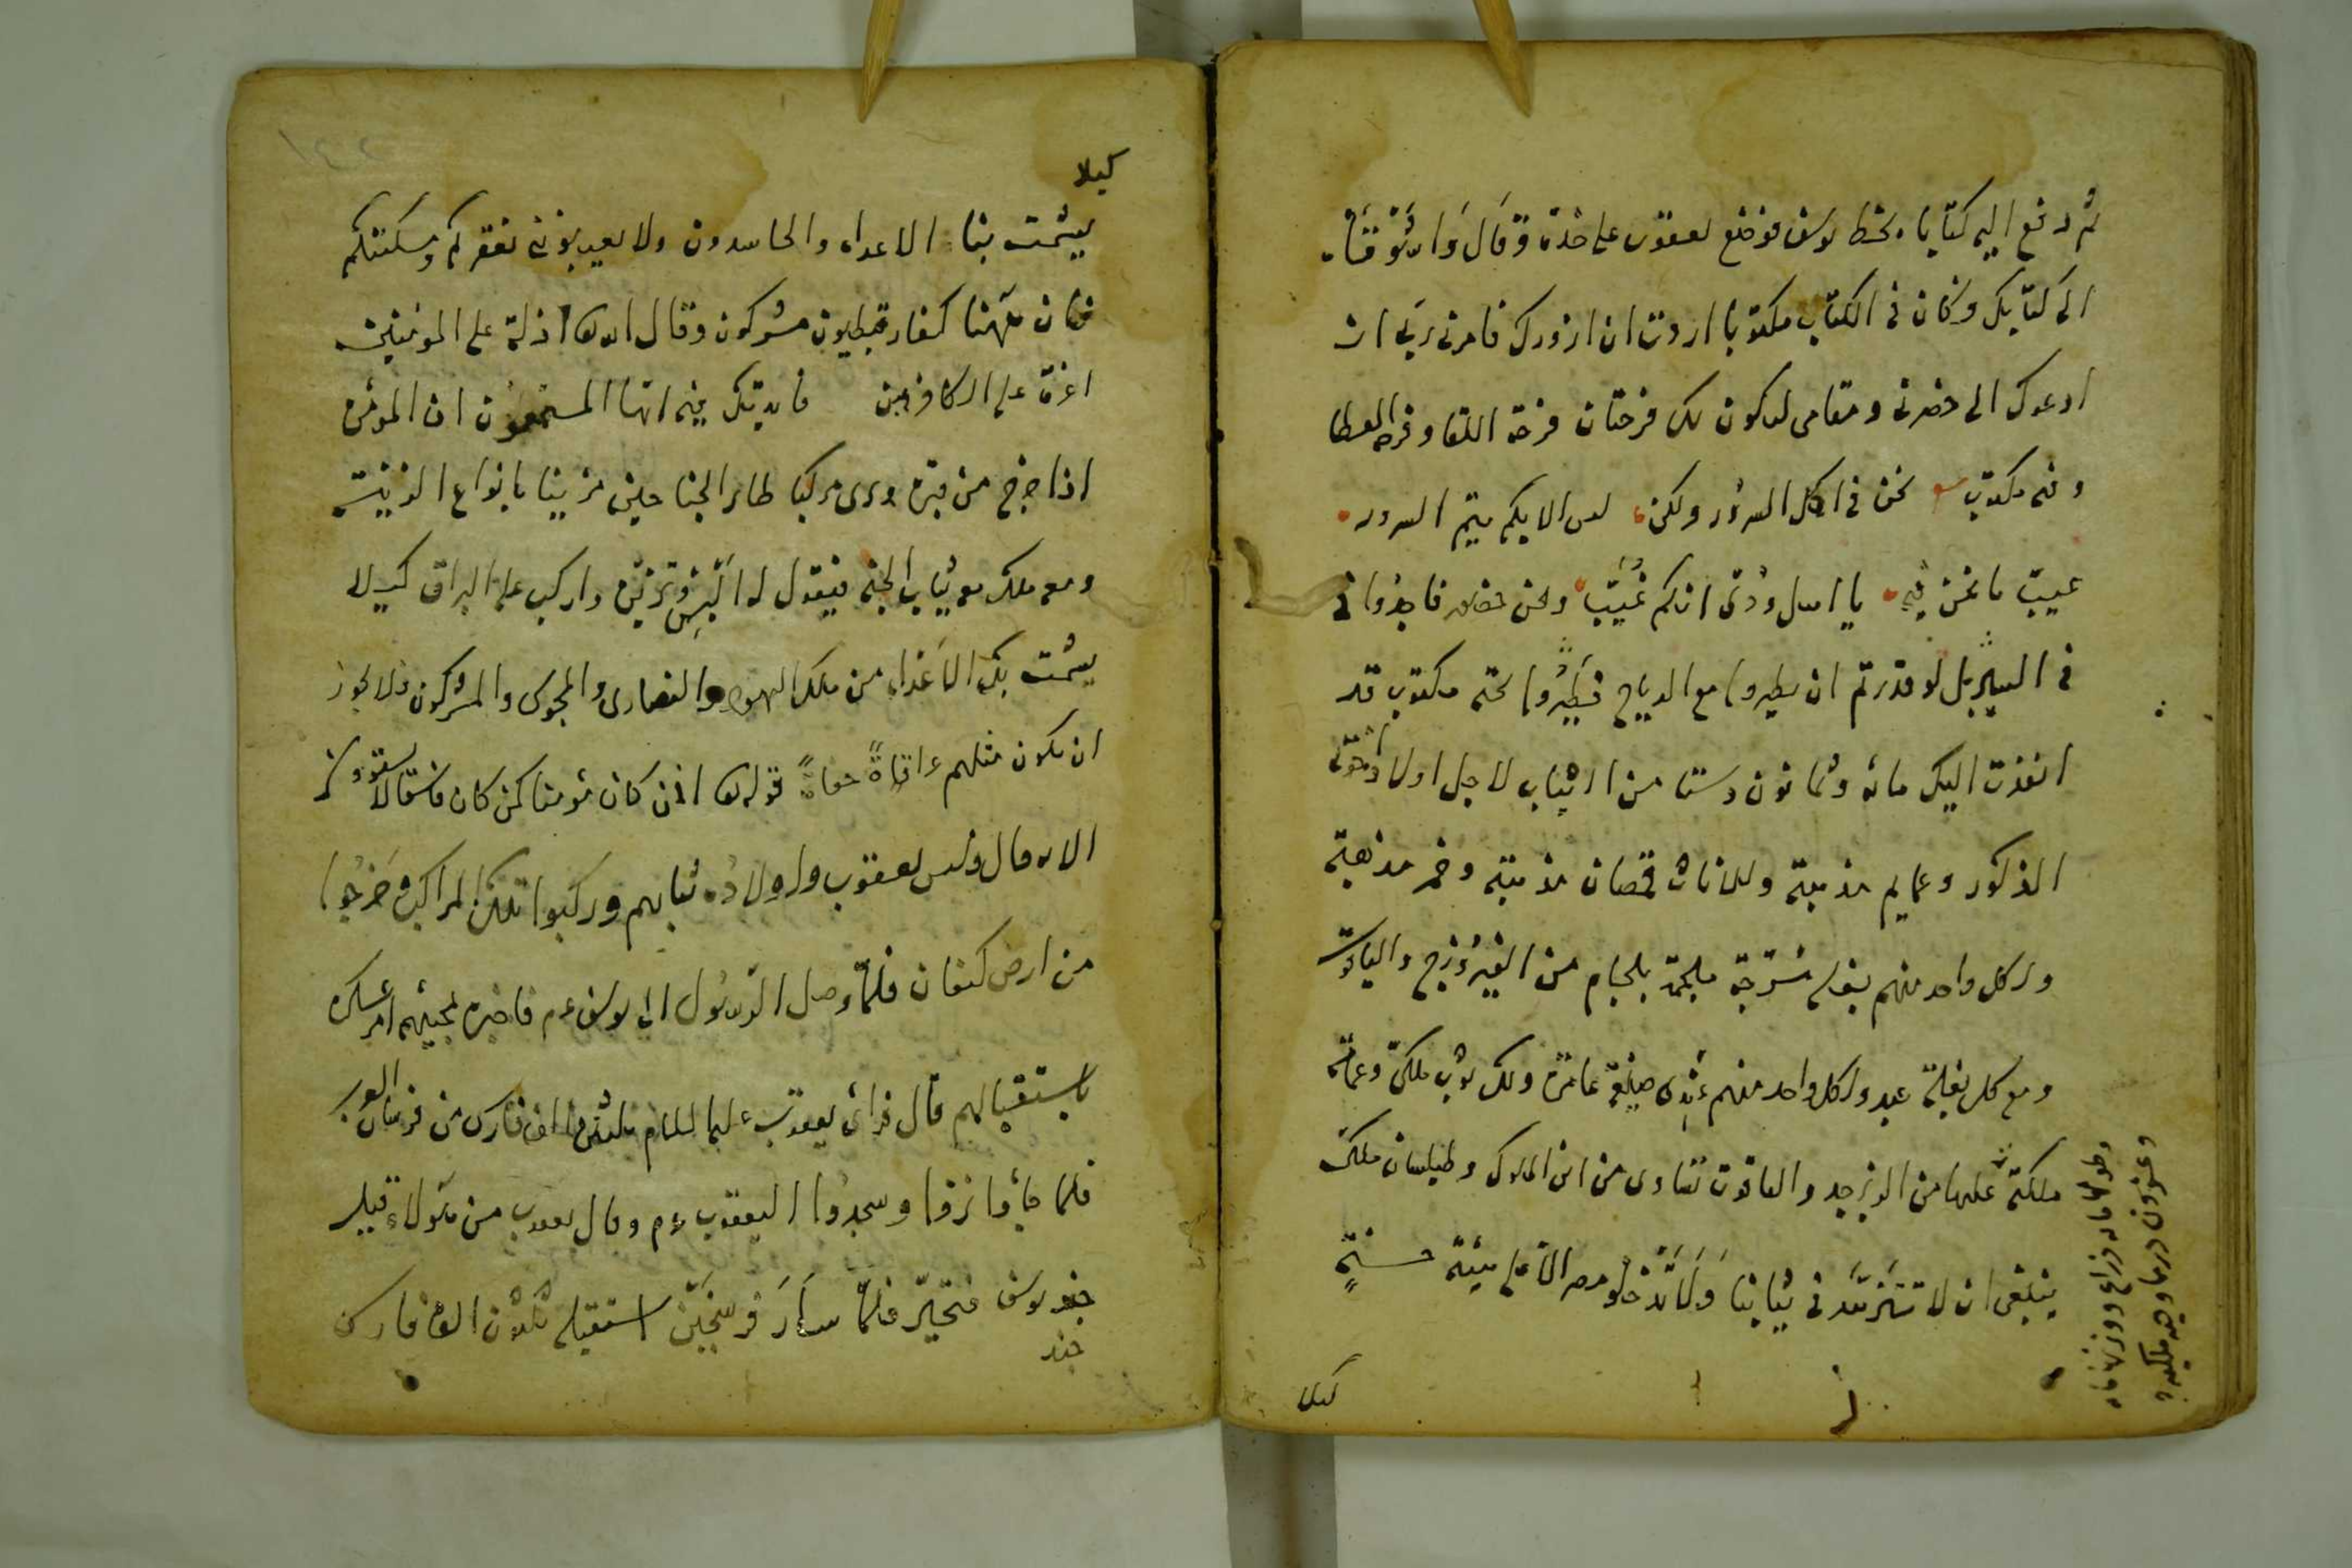 ثم دفع اليه كتابا بخط يوسف فوضع يعقوب على خده وقال واشوقاه
الى كتابك وكان فى الكتاب مكتوبا اردت ان ازورك فامرنى ربى ان
ادعوك الى حضرتى ومقامى ليكون لك فرحتان فرحة اللقا وفرحة العطا
وفيه مكتوب نحن فى اكمل السرور ولكن ليس الا بكم يتم السرور
عيب ما نحن فيه يا اهل ودى انكم غيب ونحن حضور فاجدوا
فى السير بل لو قدرتم ان تطيروا مع الرياح فطيروا تحته مكتوب قد
انفذت اليك مائة وثمانون دستا من الثياب لاجل اولاد اخوتى
الذكور وعمايم مذهبة وللاناث قمصان مذهبة وخمر مذهبة
ولكل واحد منهم بغلة مسرجة ملجمة بلجام من الفيروزج والياقوت
ومع كل بغلة عبد ولكل واحد منهم عندى ضيعة عامرة ولك ثوب ملكى وعمامة
ملكية عليها من الزبرجد والياقوت تساوى من الملوك وطيلسان ملكى
ينبغى ان لا تتزهد فى ثيابنا ولا تدخلو مصر الا على هيئة حسنة
كيلا
وطولها مائة ذراع ووزنها مائة
وعشرون درهما
كيلا
يشمت بنا الاعداء والحاسدون ولا يعيبوننى بفقركم ومسكنتكم
فان ههنا كفار قبطيون مشركون وقال الله تعالى اذلة على المؤمنين
اعزة على الكافرين فايدتك فيه ايها المستمعون ان المؤمن
اذا خرج من قبره يرى مركبا طائر الجناحين مزينا بانواع الزينة
ومعه ملك معه ثياب الجنة فيقول له البس وتزين واركب على البراق كيلا
يشمت بك الاعداء من تلك اليهود والنصارى والمجوس والمشركون ولا يجوز
ان يكون مثلهم عراة حفاة قوله تعالى افمن كان مؤمنا كمن كان فاسقا لا يستوون
الاية قال ولبس يعقوب واولاده ثيابهم وركبوا تلك المراكب وخرجوا
من ارض كنعان فلما وصل الرسول الى يوسف عم فاخبره بمجيئهم امر عسكره
باستقبالهم قال فرأى يعقوب عليه السلام ثلثون الف فارس من فرسان العرب
فلما جاؤا نزلوا وسجدوا ليعقوب عم وقال يعقوب من هؤلاء قيل
جند يوسف فتحير فلما سار فرسخين استقبله ثلثون الف فارس
جند